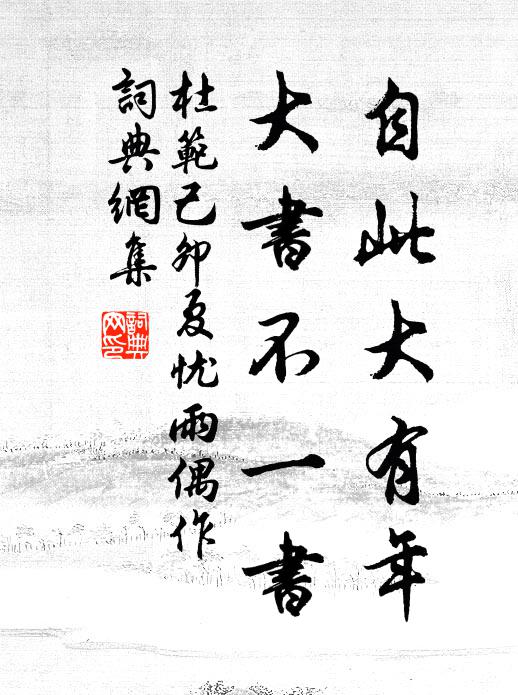 自此大有年
大書不一書
杜範己卯夏忧雨偶作
詞典網集
詞典
网印